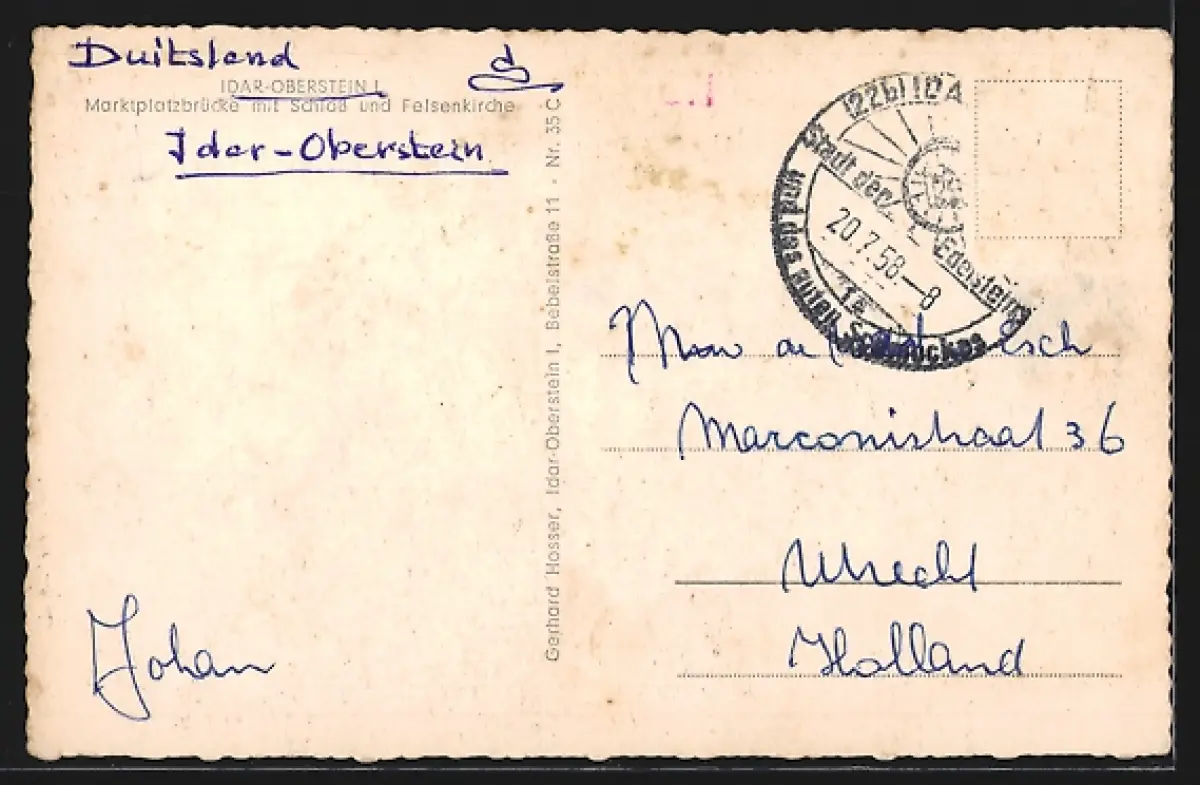 Duitsland
IDAR-OBERSTEIN I
Marktplatzbrücke mit Schloß und Felsenkirche
Idar-Oberstein
Johan
Gerhard Hosser, Idar-Oberstein I, Bebelstraße 11 - Nr. 35 C
(22b) IDA
Stadt der Edelsteine
20.7.58-8
und des Schmuckes
esch
Marconistraat 36
Utrecht
Holland